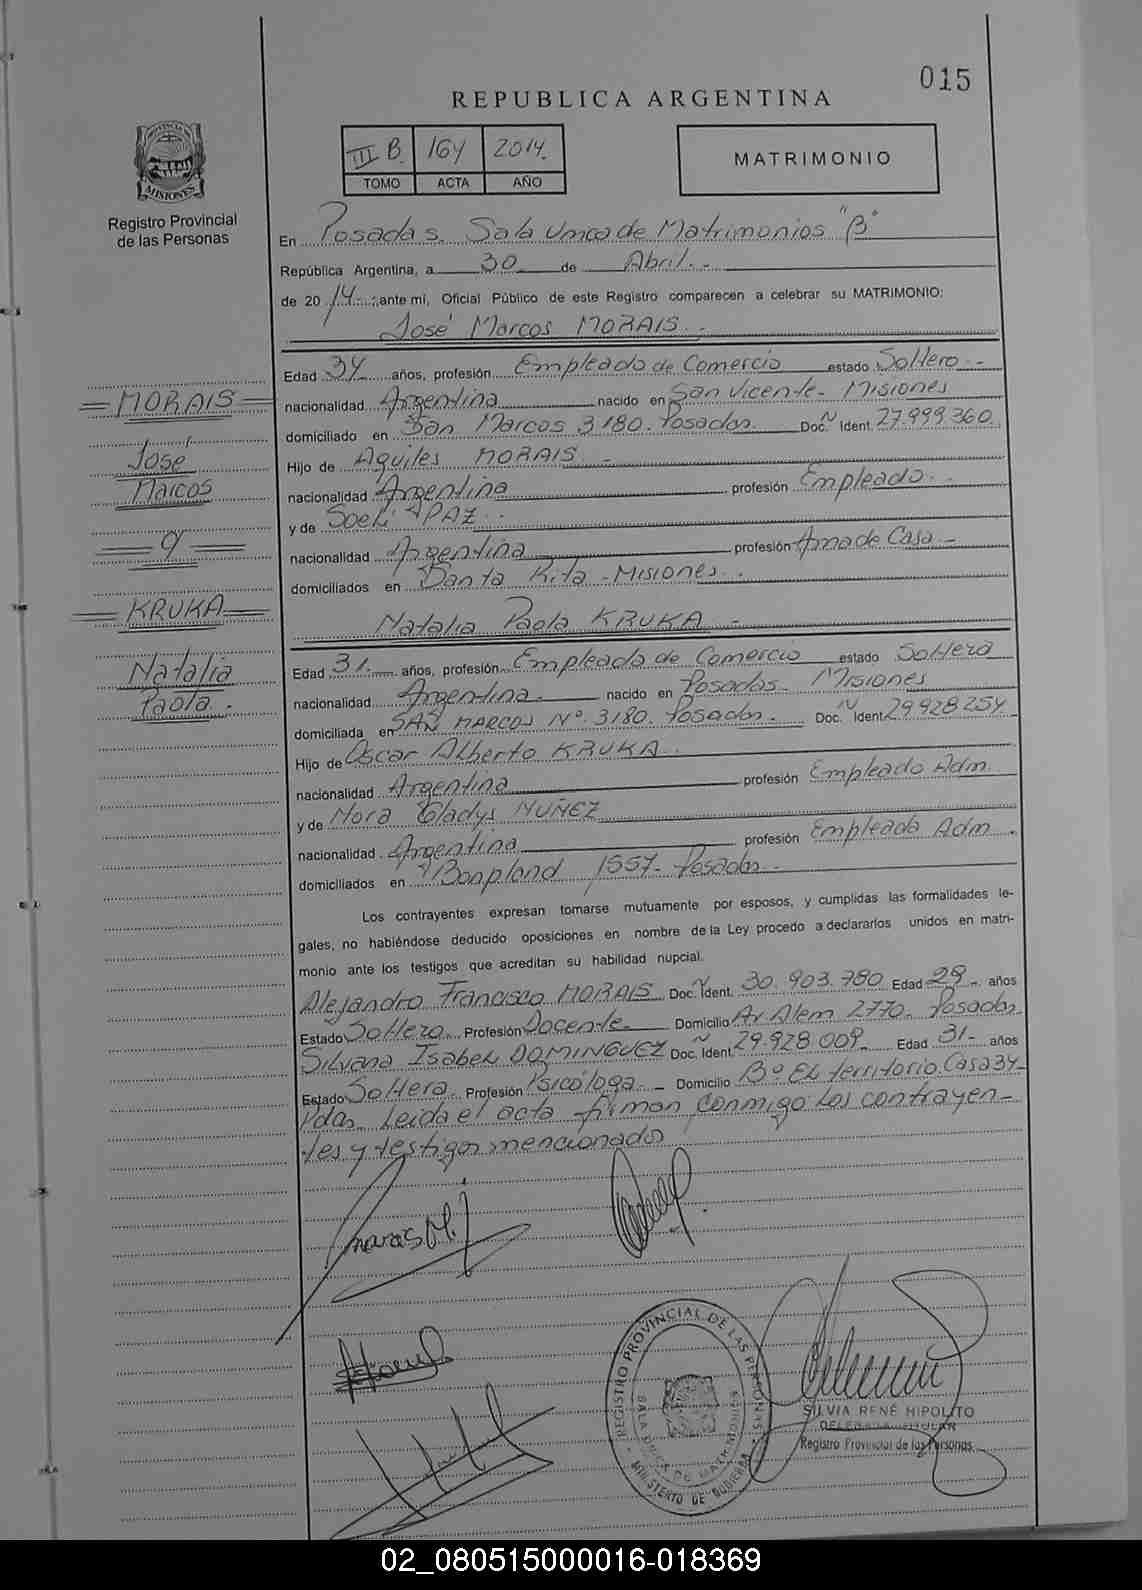 015
REPUBLICA ARGENTINA
III B. 164 2014.
TOMO ACTA AÑO
MATRIMONIO
PROVINCIA DE
MISIONES
Registro Provincial
de las Personas
En Posadas. Sala Unica de Matrimonios "B"
República Argentina, a 30 de Abril.-
de 2014.- ante mi, Oficial Público de este Registro comparecen a celebrar su MATRIMONIO:
José Marcos MORAIS.-
Edad 34 años, profesión Empleado de Comercio estado Soltero.-
nacionalidad Argentina nacido en San Vicente- Misiones
domiciliado en San Marcos 3180. Posadas. Doc. Ident. 27.999.360.
Hijo de Aquiles MORAIS.-
nacionalidad Argentina profesión Empleado.-
y de Soeli PAZ.-
nacionalidad Argentina profesión Ama de Casa.-
domiciliados en Santa Rita - Misiones.
Natalia Paola KRUKA.-
Edad 31.- años, profesión Empleada de Comercio estado Soltera
nacionalidad Argentina.- nacido en Posadas- Misiones
domiciliada en SAN MARCOS N° 3180. Posadas.- Doc. Ident. 29.928.254
Hijo de Oscar Alberto KRUKA.
nacionalidad Argentina profesión Empleado Adm.
y de Nora Gladys MUÑEZ
nacionalidad Argentina profesión Empleada Adm.
domiciliados en Bonpland 1557- Posadas.-
Los contrayentes expresan tomarse mutuamente por esposos, y cumplidas las formalidades le-
gales, no habiéndose deducido oposiciones en nombre de la Ley procedo a declararlos unidos en matri-
monio ante los testigos que acreditan su habilidad nupcial.
Alejandro Francisco MORAIS Doc. Ident. 30.903.780 Edad 29.- años
Estado Soltero. Profesión Docente.- Domicilio Av Alem 2770. Posadas.
Silvana Isabel DOMINGUEZ Doc. Ident. 29.928.009.- Edad 31.- años
Estado Soltera. Profesión Psicóloga.- Domicilio B° El territorio. Casa 34-
Pdas. Leida el acta firman conmigo los contrayen-
tes y testigos mencionados
= MORAIS =
José
Marcos
= y =
= KRUKA =
Natalia
Paola.-
REGISTRO PROVINCIAL DE LAS PERSONAS
SALA UNICA DE MATRIMONIOS
MINISTERIO DE GOBIERNO
SILVIA RENÉ HIPOLITO
DELEGADA TITULAR
Registro Provincial de las Personas
02_080515000016-018369